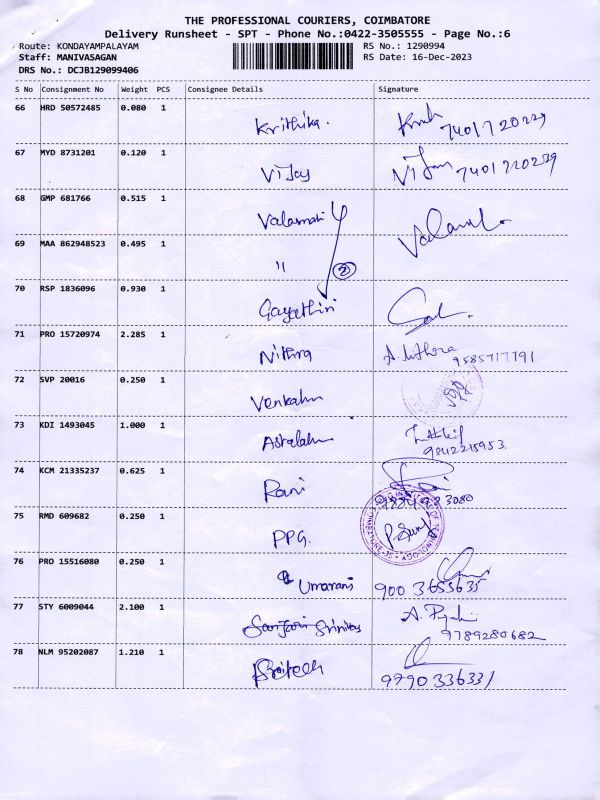 THE PROFESSIONAL COURIERS, COIMBATORE
Delivery Runsheet - SPT - Phone No.:0422-3505555 - Page No.:6
Route: KONDAYAMPALAYAM RS No.: 1290994
Staff: MANIVASAGAN RS Date: 16-Dec-2023
DRS No.: DCJB129099406
S No Consignment No Weight PCS Consignee Details Signature
66 HRD 50572485 0.080 1 Krithika. 7401720229
67 MYD 8731201 0.120 1 Vijay Vijay 7401720239
68 GMP 681766 0.515 1 Valarmati
69 MAA 862948523 0.495 1 " 2
70 RSP 1836096 0.930 1 Gayathiri
71 PRO 15720974 2.285 1 Nithra A. Nithra 9585717791
72 SVP 20016 0.250 1
73 KDI 1493045 1.000 1 9842215953
74 KCM 21335237 0.625 1 Rani
75 RMD 609682 0.250 1 PPG.
76 PRO 15516080 0.250 1 Umarani 900 3655635
77 STY 6009044 2.100 1 Srinivas 9789280682
78 NLM 95202087 1.210 1 979033633